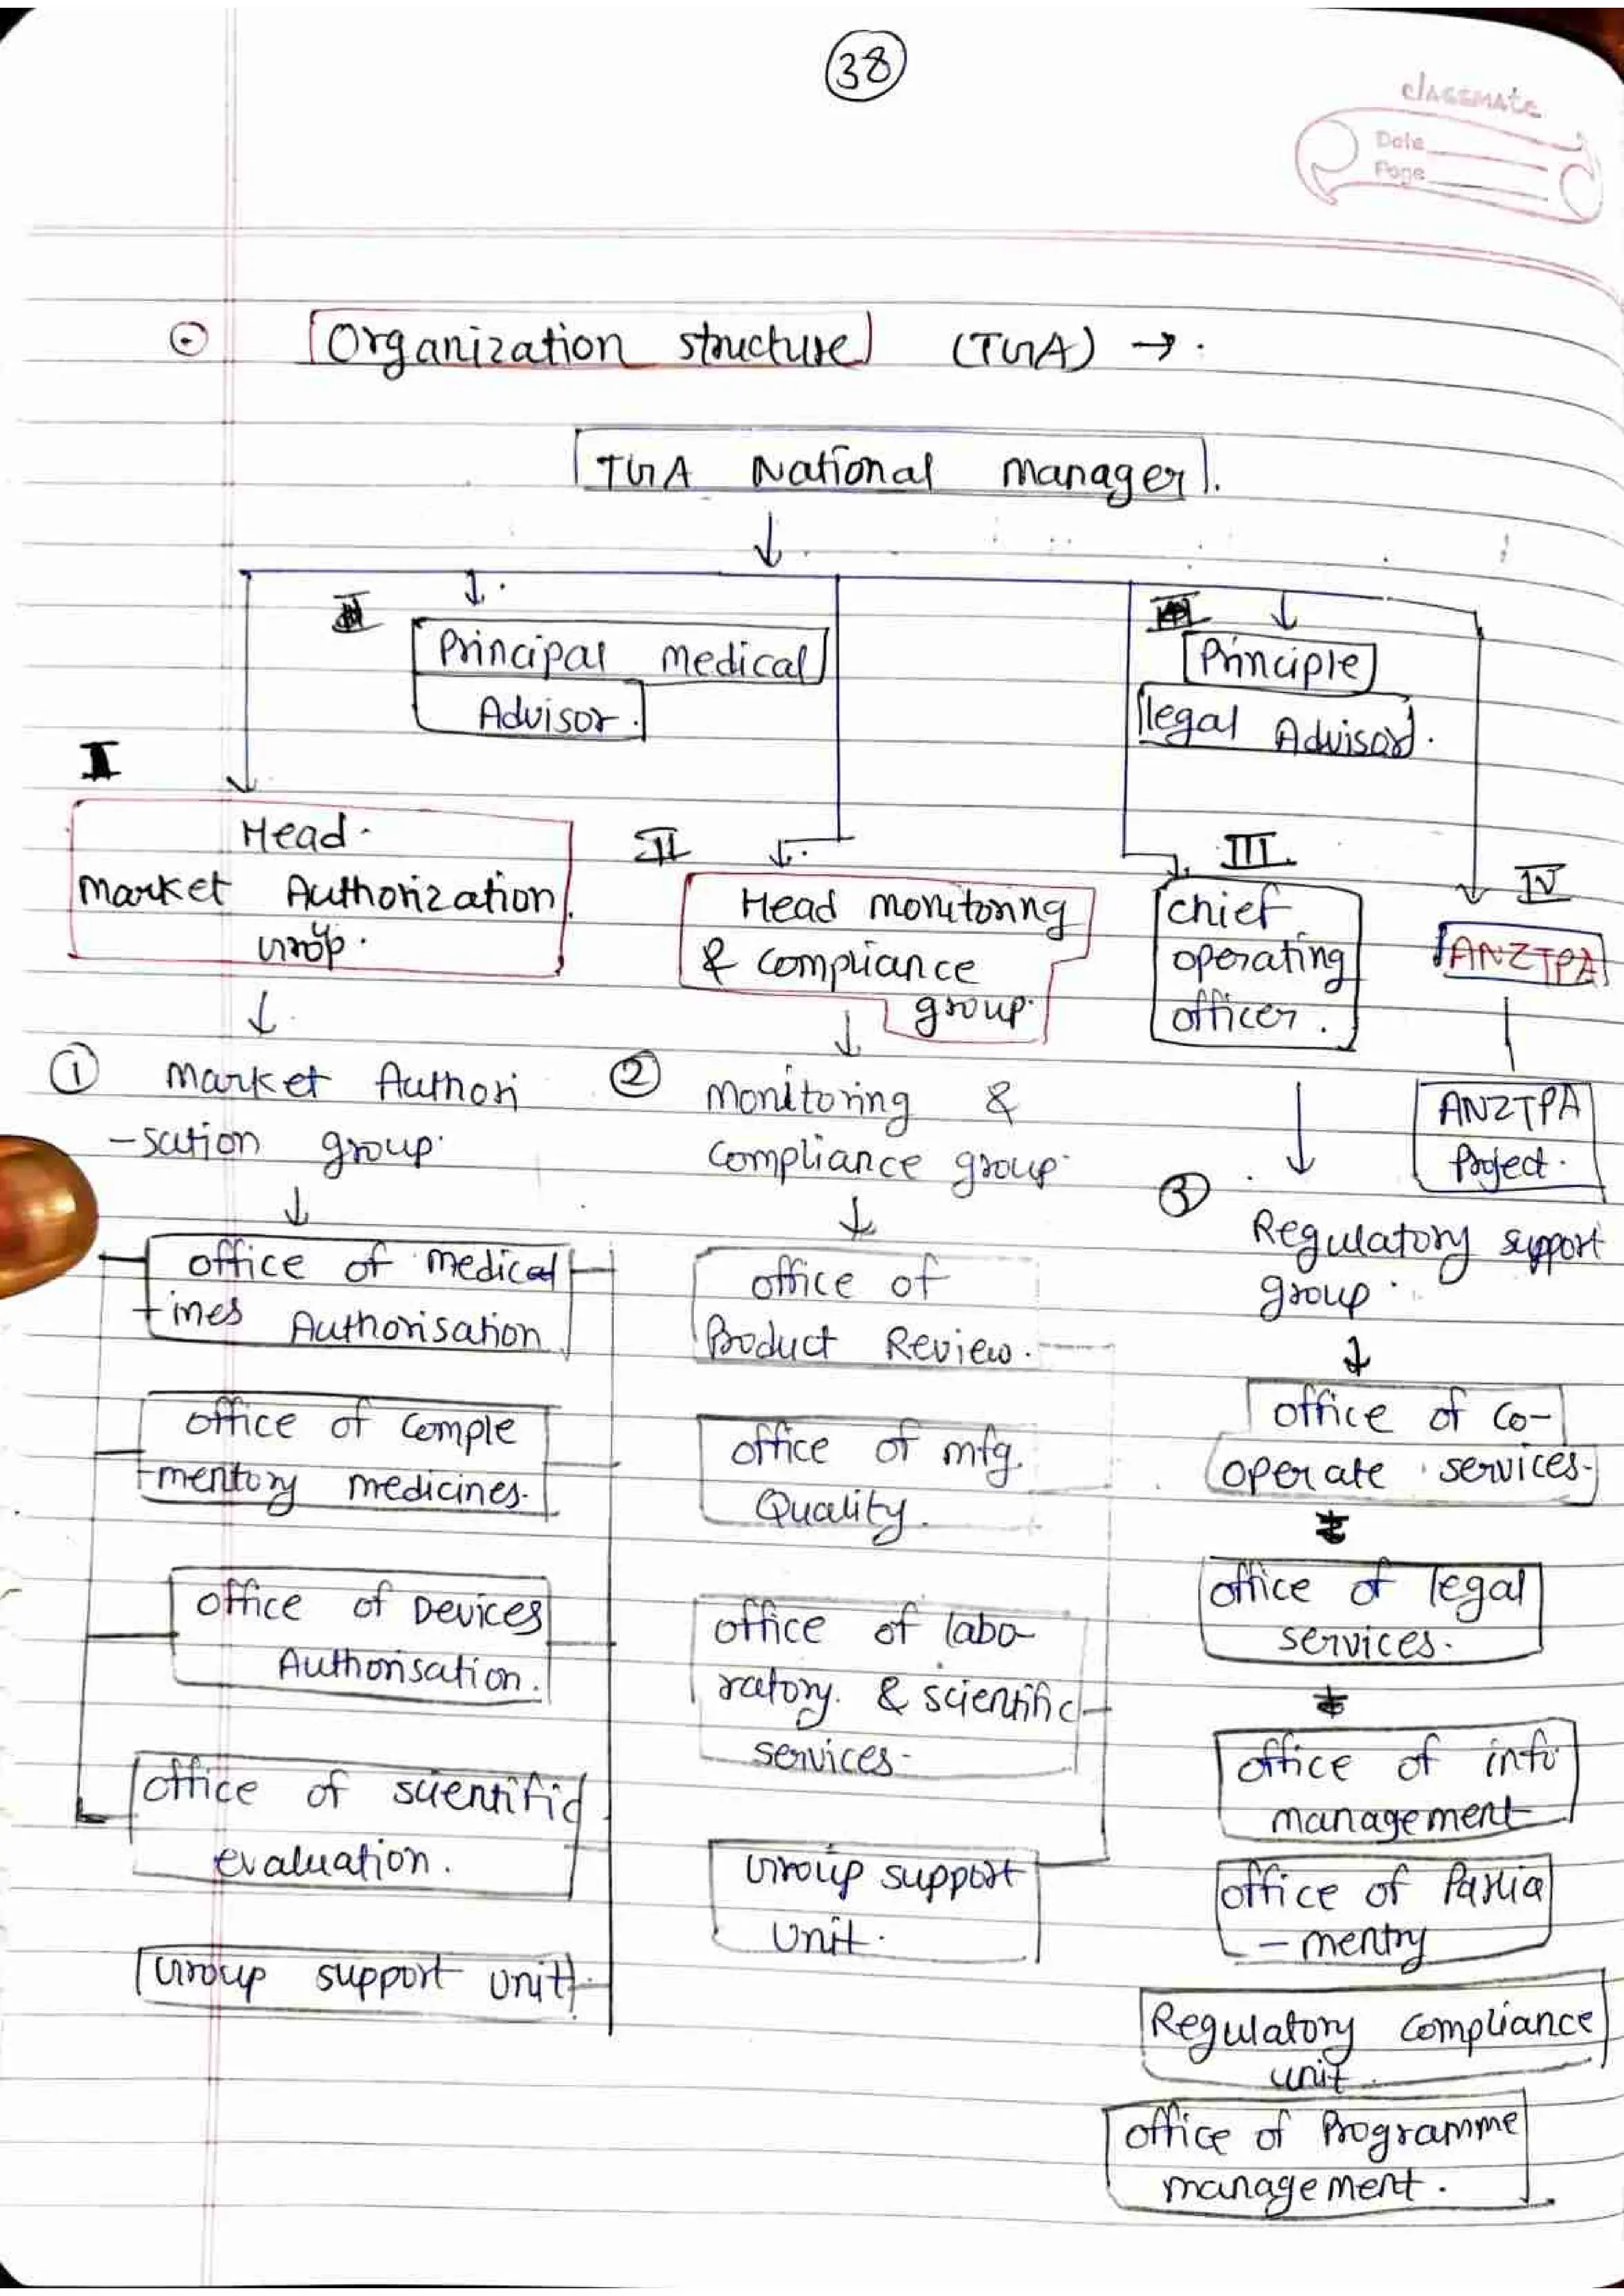 38
classmate
Date
Page
Organization structure (TGA) →
TGA National manager.
Principal medical
Advisor.
Principle
legal Advisor.
I
Head
market Authorization
Group.
II
Head monitoring
& compliance
group.
III
chief
operating
officer.
IV
ANZTPA
ANZTPA
Project.
① market Authori
-sation group.
office of medical
-ines Authorisation
office of comple
-mentory medicines.
office of Devices
Authorisation.
office of scientific
evaluation.
Group support unit.
② monitoring &
compliance group.
office of
Product Review.
office of mfg.
Quality.
office of labo-
ratory. & scientific
services-
Group support
Unit.
③
Regulatory support
group.
office of co-
operate services.
office of legal
services.
office of info
management
office of Parlia
- mentry
Regulatory compliance
unit.
office of Programme
management.